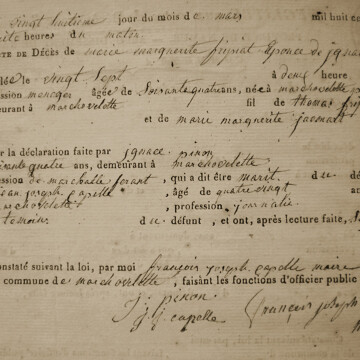 Vingt huitieme jour du mois de mars mil huit ce
heures du matin
TE DE Décès de marie marguerite fripiat Eponce de ignac
le vingt Sept à deux heure
ession menager âgée de Soixante quatre ans, née à marchovelette
eurant à marchovelette fil de thomas
et de marie marguerite jacquart
r la déclaration faite par ignace pinon
ixante quatre ans, demeurant à marchovelette
ession de marechalle ferant, qui a dit être marit du dé
ean joseph capelle, âgé de quatre vingt
archovelette, profession journalie
temoins du défunt, et ont, après lecture faite,
onstaté suivant la loi, par moi françois joseph capelle maire
commune de marchovelette, faisant les fonctions d'officier public
J: pinon
J J capelle
françois joseph